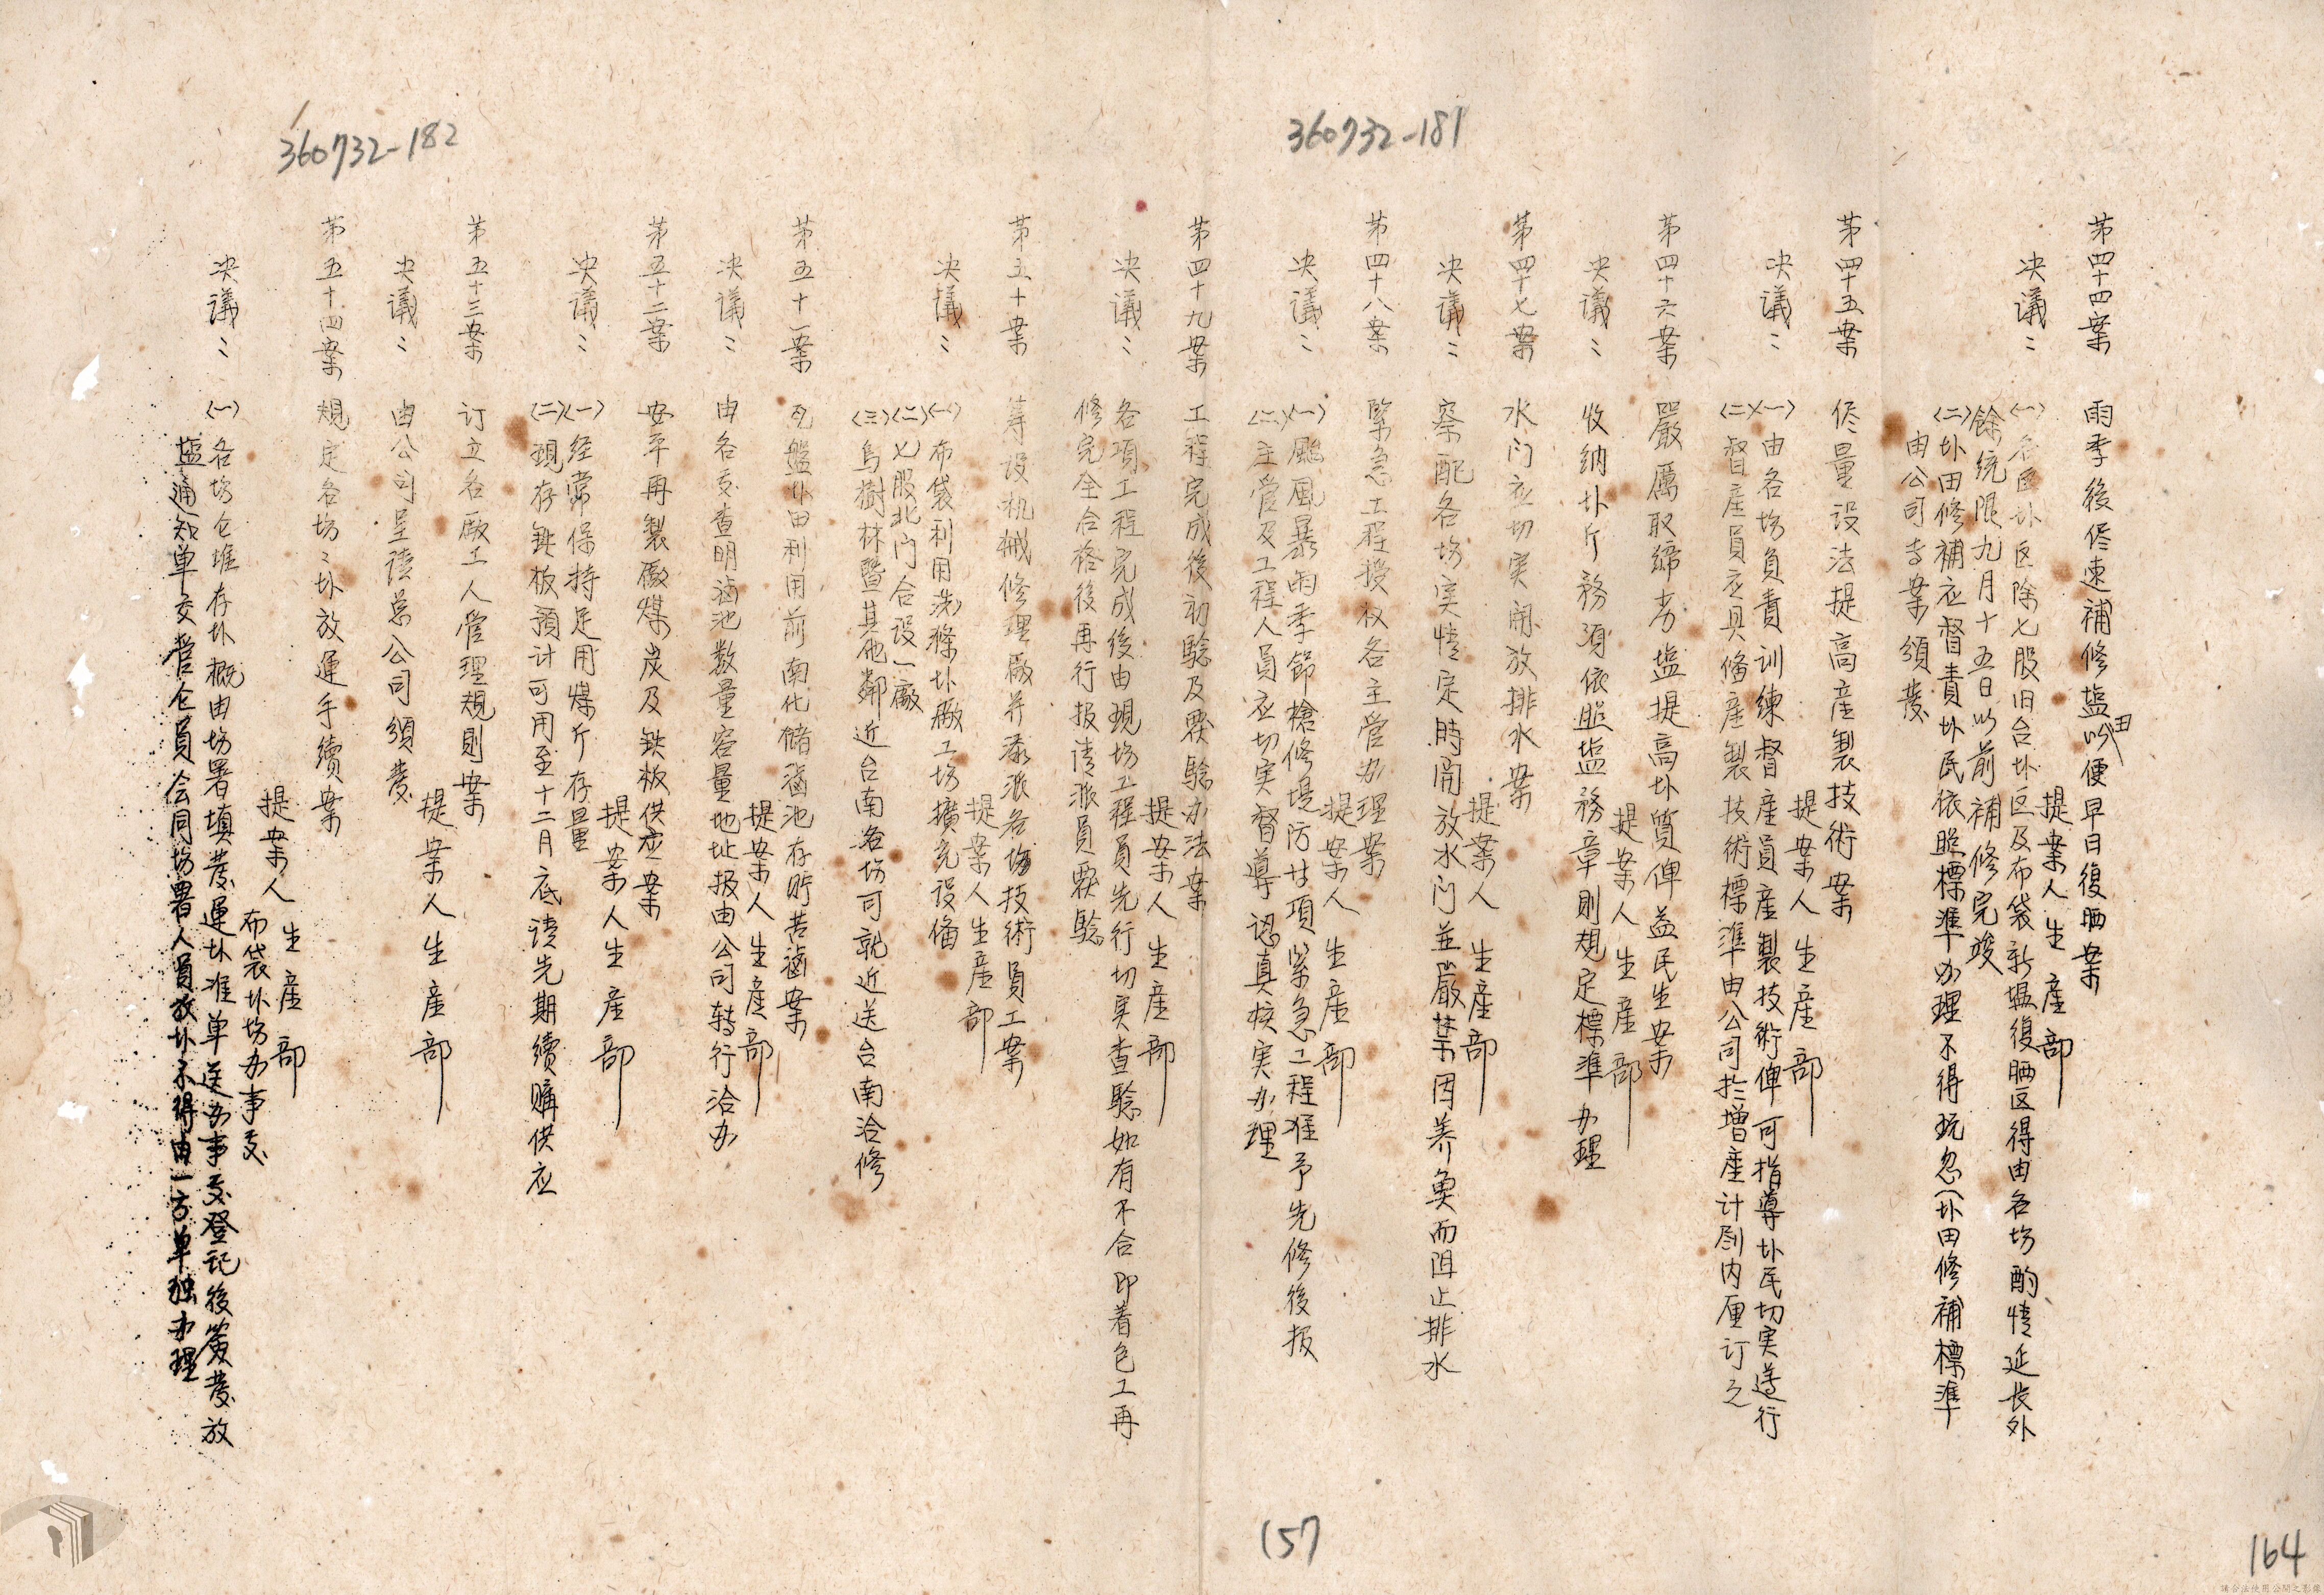 360732-181
第四十四案 雨季後侭速補修塩田以便早日復晒案
提案人 生產部
決議: (一)各區圤区除七股旧台圤区及布袋新塭復晒区得由各场酌情延長外
餘統限九月十五日以前補修完竣
(二)圤田修補应督責圤民依照標準办理不得玩忽(圤田修補標準
由公司专案頒发
第四十五案 侭量设法提高產製技術案
提案人 生產部
決議: (一)由各场負責训練督產員產製技術俾可指導圤民切实遵行
(二)督產員应具俻產製技術標準由公司於增產计劃内厘订之
第四十六案 嚴厲取締劣塩提高圤質俾益民生案
提案人 生產部
決議: 收纳圤斤務須依照塩務章則規定標準办理
第四十七案 水门应切实開放排水案
提案人 生產部
決議: 察配各场实情定時開放水门並嚴禁因养魚而阻止排水
第四十八案 緊急工程授权各主管办理案
提案人 生產部
決議: (一)颱風暴雨季節搶修堤防廿項緊急工程准予先修後报
(二)主管及工程人員应切实督導認真核实办理
第四十九案 工程完成後初驗及覆驗办法案
提案人 生產部
決議: 各項工程完成後由現场工程員先行切实查驗如有不合即着色工再
修完全合格後再行报请派員覆驗
第五十案 筹设机械修理廠并添派各场技術員工案
提案人 生產部
決議: (一)布袋利用洗滌圤廠工场擴充設俻
(二)七股北门合设一廠
(三)烏樹林暨其他鄰近台南各场可就近送台南洽修
360732-182
第五十一案 瓦盤圤田利用前南化储滷池存贮苦滷案
提案人 生產部
決議: 由各处查明滷池数量容量地址报由公司转行洽办
第五十二案 安平再製廠煤炭及鉄板供应案
提案人 生產部
決議: (一)经常保持足用煤斤存量
(二)現存鉄板預计可用至十二月底请先期續購供应
第五十三案 订立各廠工人管理規則案
提案人 生產部
決議: 由公司呈请总公司頒发
第五十四案 規定各场:圤放運手續案
提案人 生產部
布袋圤场办事处
決議: (一)各场仓堆存圤概由场署填发運圤准单送办事处登记後簽发放
塩通知单交管仓員会同场署人員放圤不得由一方单独办理
157
164
請合法使用公開之影像